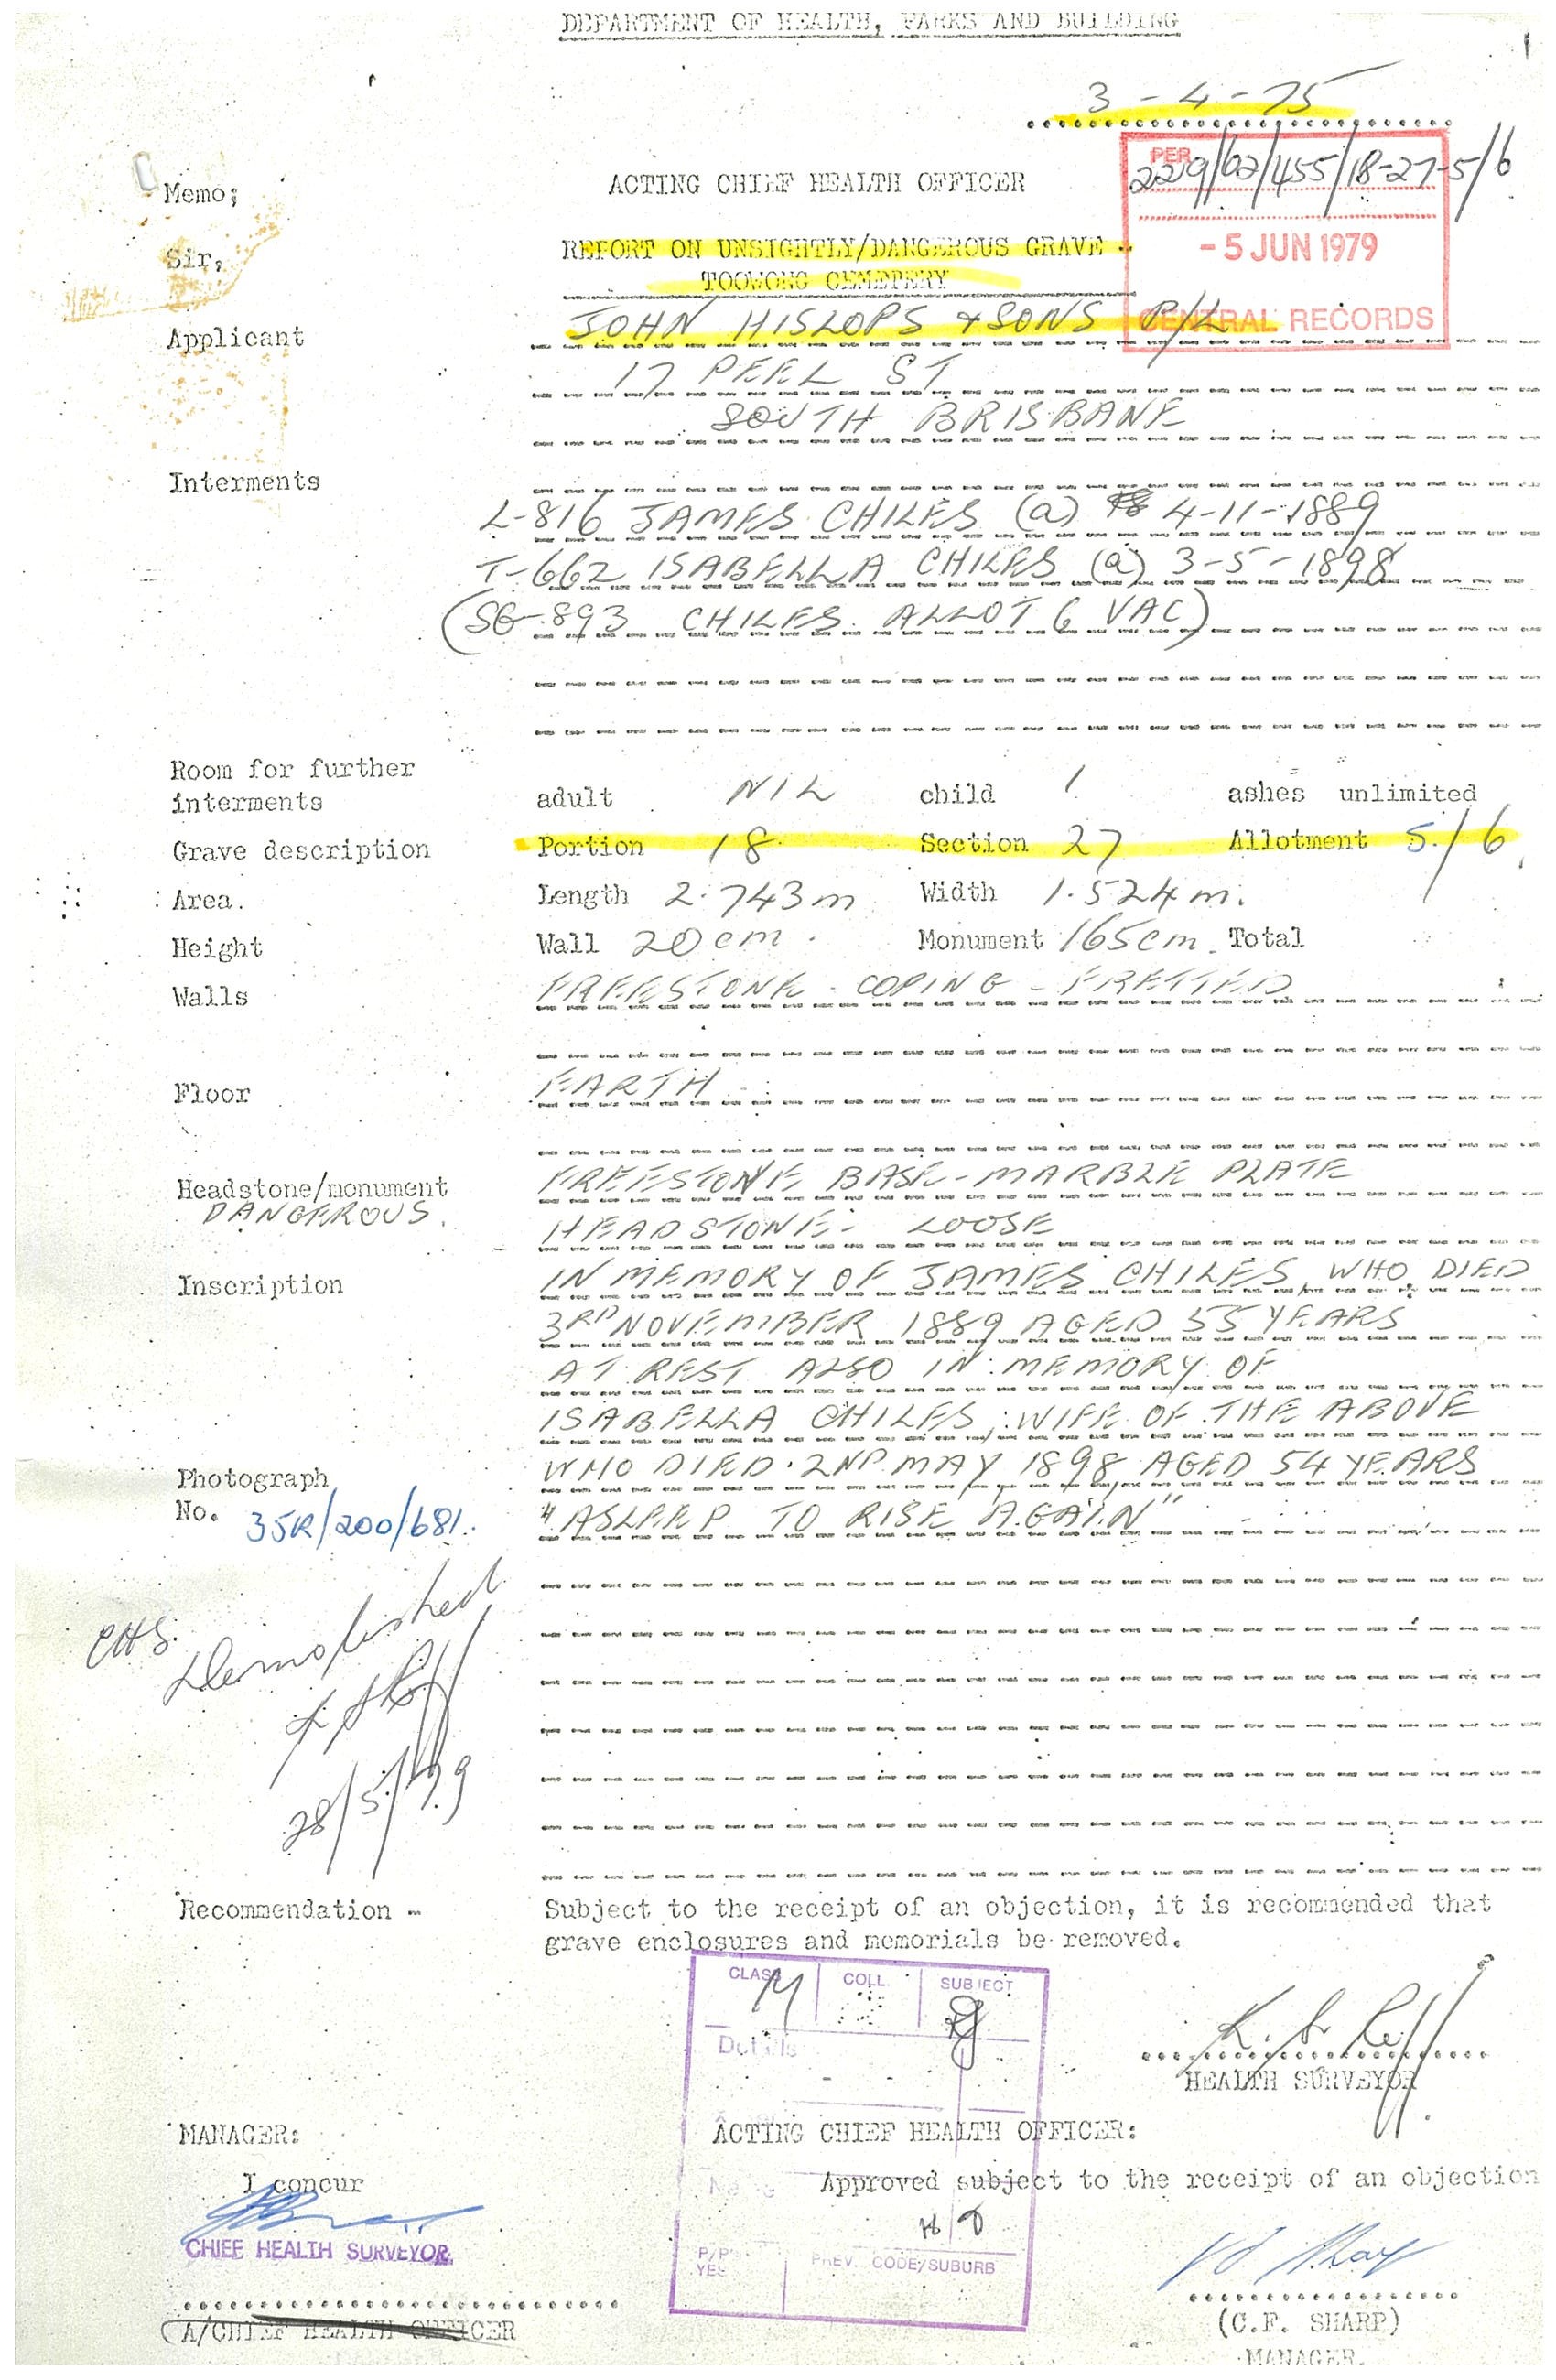 DEPARTMENT OF HEALTH, PARKS AND BUILDING
3 - 4 - 75
PER
229/62/455/18-27-5/6
Memo;
ACTING CHIEF HEALTH OFFICER
Sir,
REPORT ON UNSIGHTLY/DANGEROUS GRAVE -
TOOWONG CEMETERY
- 5 JUN 1979
CENTRAL RECORDS
Applicant
JOHN HISLOPS & SONS P/L
17 PEEL ST
SOUTH BRISBANE
Interments
L-816 JAMES CHILES (a) 4-11-1889
T-662 ISABELLA CHILES (a) 3-5-1898
(SG-893 CHILES ALLOT 6 VAC)
Room for further
interments adult NIL child 1 ashes unlimited
Grave description Portion 18 Section 27 Allotment 5/6
Area. Length 2.743m Width 1.524m.
Height Wall 20cm. Monument 165cm. Total
Walls FREESTONE - COPING - FRETTED
Floor EARTH
Headstone/monument FREESTONE BASE - MARBLE PLATE
DANGEROUS. HEADSTONE - LOOSE
Inscription IN MEMORY OF JAMES CHILES, WHO DIED
3RD NOVEMBER 1889 AGED 55 YEARS
AT REST ALSO IN MEMORY OF
ISABELLA CHILES, WIFE OF THE ABOVE
Photograph WHO DIED 2ND MAY 1898 AGED 54 YEARS
No. 35R/200/681. "ASLEEP TO RISE AGAIN"
CHS.
Demolished
28/5/79
Recommendation - Subject to the receipt of an objection, it is recommended that
grave enclosures and memorials be removed.
CLASS M COLL. SUBJECT
Details
HEALTH SURVEYOR
MANAGER: ACTING CHIEF HEALTH OFFICER:
I concur Approved subject to the receipt of an objection
CHIEF HEALTH SURVEYOR
P/P'S
YES PREV. CODE/SUBURB
A/CHIEF HEALTH OFFICER
(C.F. SHARP)
MANAGER.